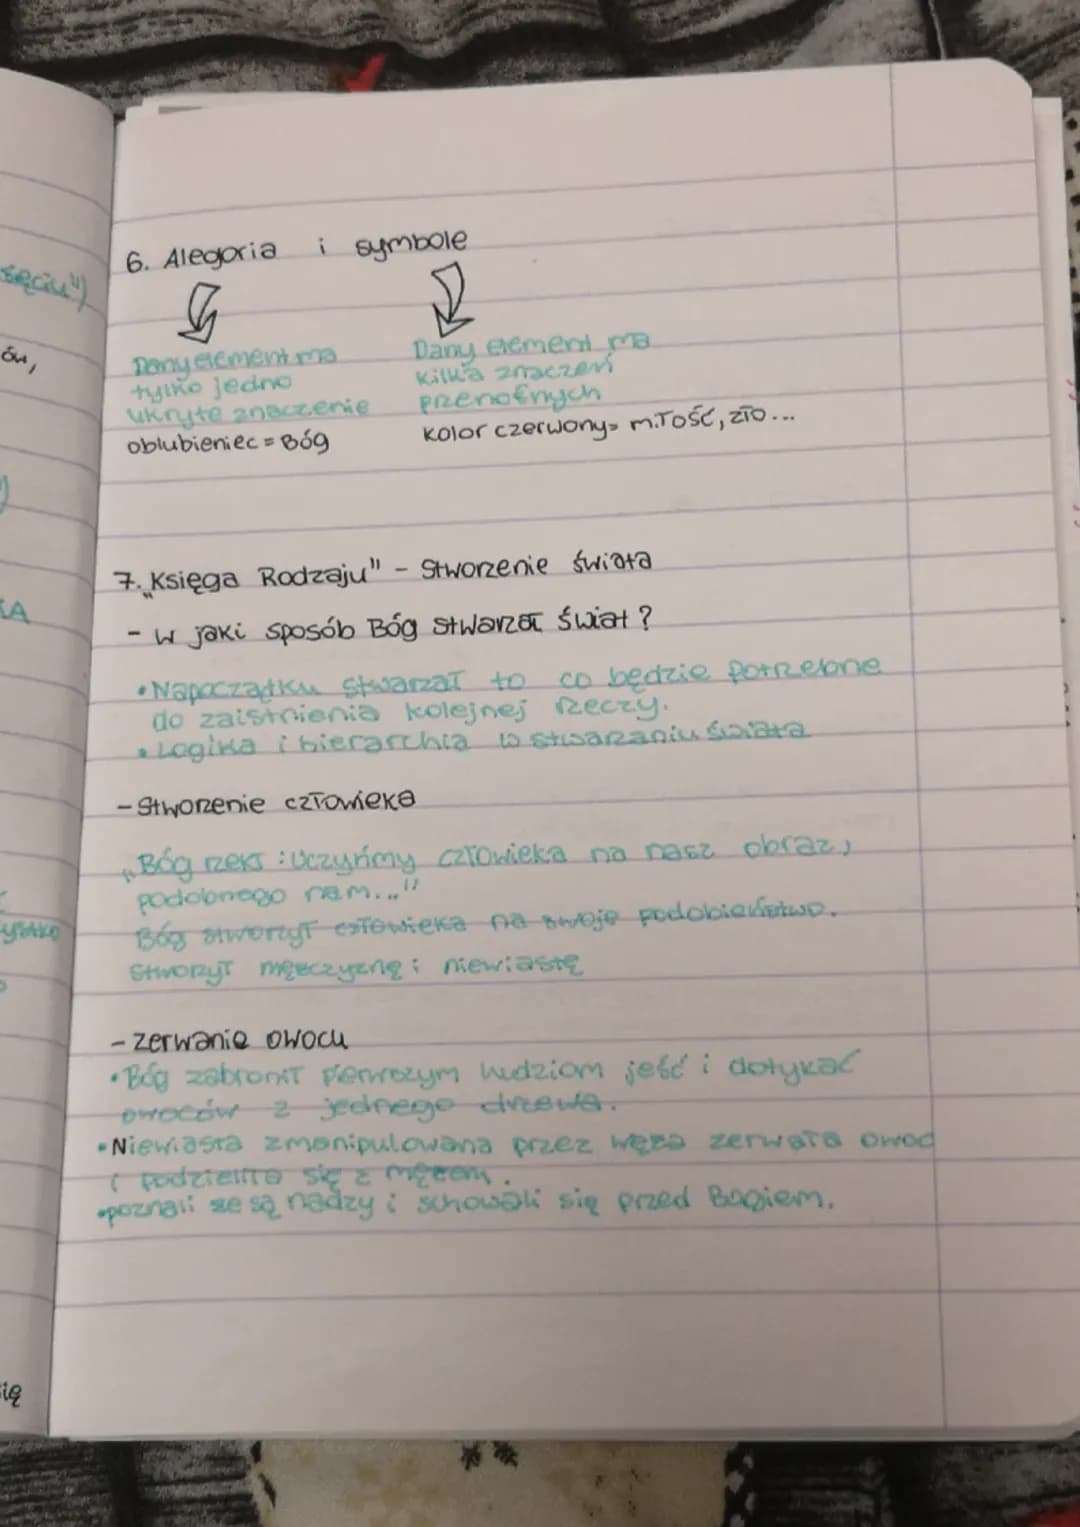 sięciu")
ów,
ię
6. Alegoria i symbole
Dany element ma
tylko jedno
ukryte znaczenie
oblubieniec = Bóg
Dany element ma
kilka znaczeń
przenośnych
kolor czerwony= miłość, zło...
7. „Księga Rodzaju" - Stworzenie świata
- w jaki sposób Bóg stwarzał świat?
• Napoczątku stwarzał to co będzie potrzebne
do zaistnienia kolejnej rzeczy.
• Logika i hierarchia w stwarzaniu świata
- Stworzenie człowieka
„Bóg rzekł: Uczyńmy człowieka na nasz obraz,
podobnego nam..."
Bóg stworzył człowieka na swoje podobieństwo.
Stworzył mężczyznę i niewiastę
- zerwanie owocu
• Bóg zabronił pierwszym ludziom jeść i dotykać
owoców z jednego drzewa.
• Niewiasta zmanipulowana przez węża zerwała owoc
i podzieliła się z mężem.
• poznali że są nadzy i schowali się przed Bogiem.